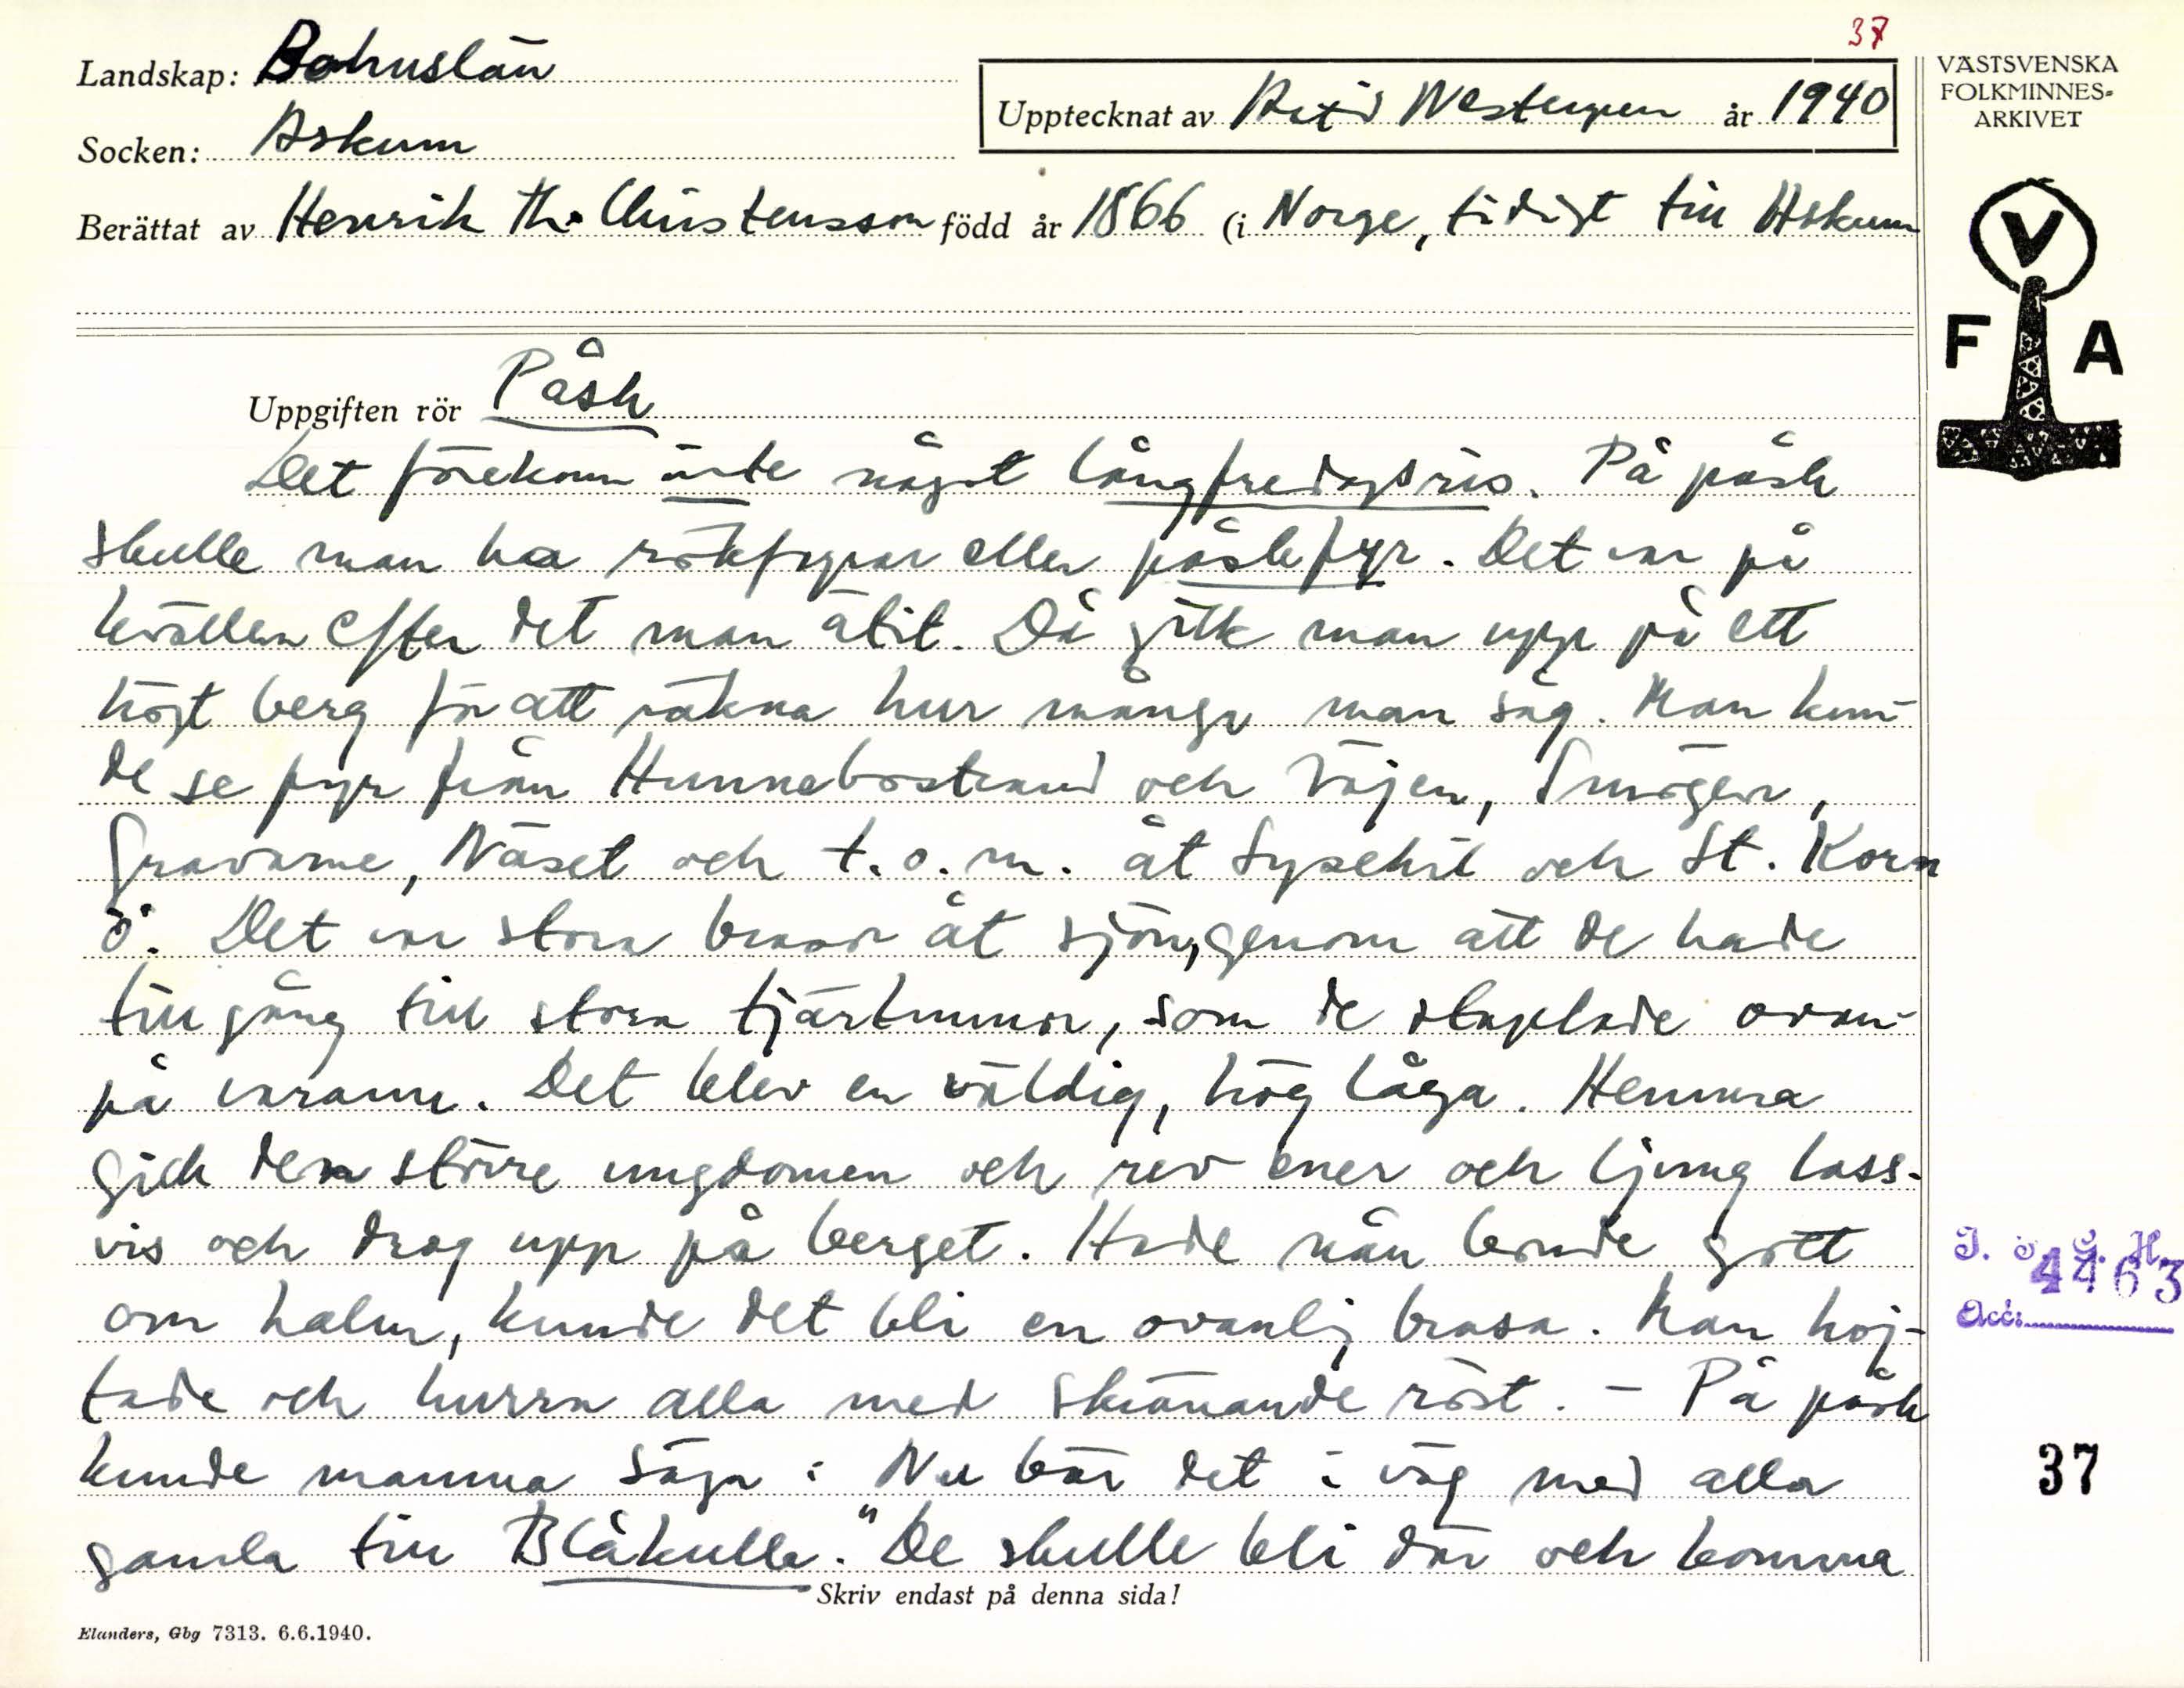 37
Landskap: Bohuslän
Upptecknat av Westergren år 1940
VÄSTSVENSKA
FOLKMINNES-
ARKIVET
Socken: Askum
Berättat av Henrik Th. Christensson född år 1866 (i Norge, tidigt till Askum
V
F A
Uppgiften rör Påsk
Det förekom inte något långfredagsris. På påsk
skulle man haa rökfyrar eller påskefyr. Det var på
kvällen efter det man ätit. Då gikk man upp på ett
högt berg för att räkna hur många man såg. Man kun-
de se fyr från Hunnebostrand och Väjen, Smögen,
Gravarne, Näset och t.o.m. åt Lysekil och St. Korn
ö. Det var stora brasor åt sjön, genom att de hade
tillgång till stora tjärtunnor, som de staplade ovan-
på varann. Det blev en väldig, hög låga. Hemma
gick den större ungdomen och rev ener och ljung lass-
vis och drog upp på berget. Hade nån bonde gott
om halm, kunde det bli en ovanlig brasa. Man hoj-
tade och hurra alla med skrånande röst. - På påsk
kunde mamma säga: Nu bär det i väg med alla
gamla till Blåkulla." De skulle bli där och komma
Skriv endast på denna sida!
Elanders, Gbg 7313. 6.6.1940.
4463
Acc.
37